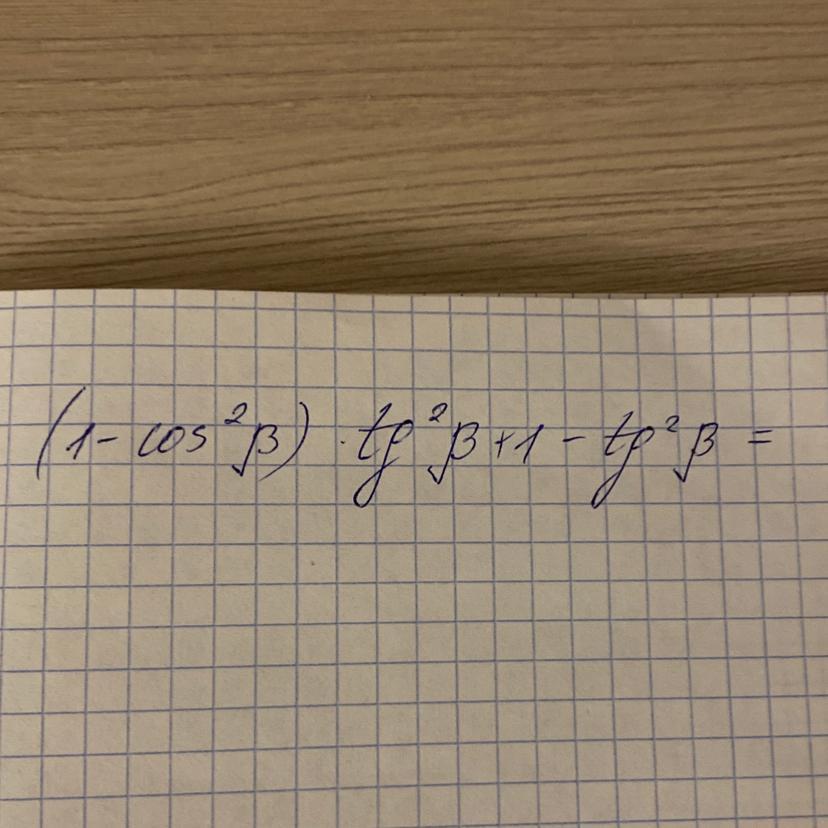 (1 - cos²β) · tg²β + 1 - tg²β =